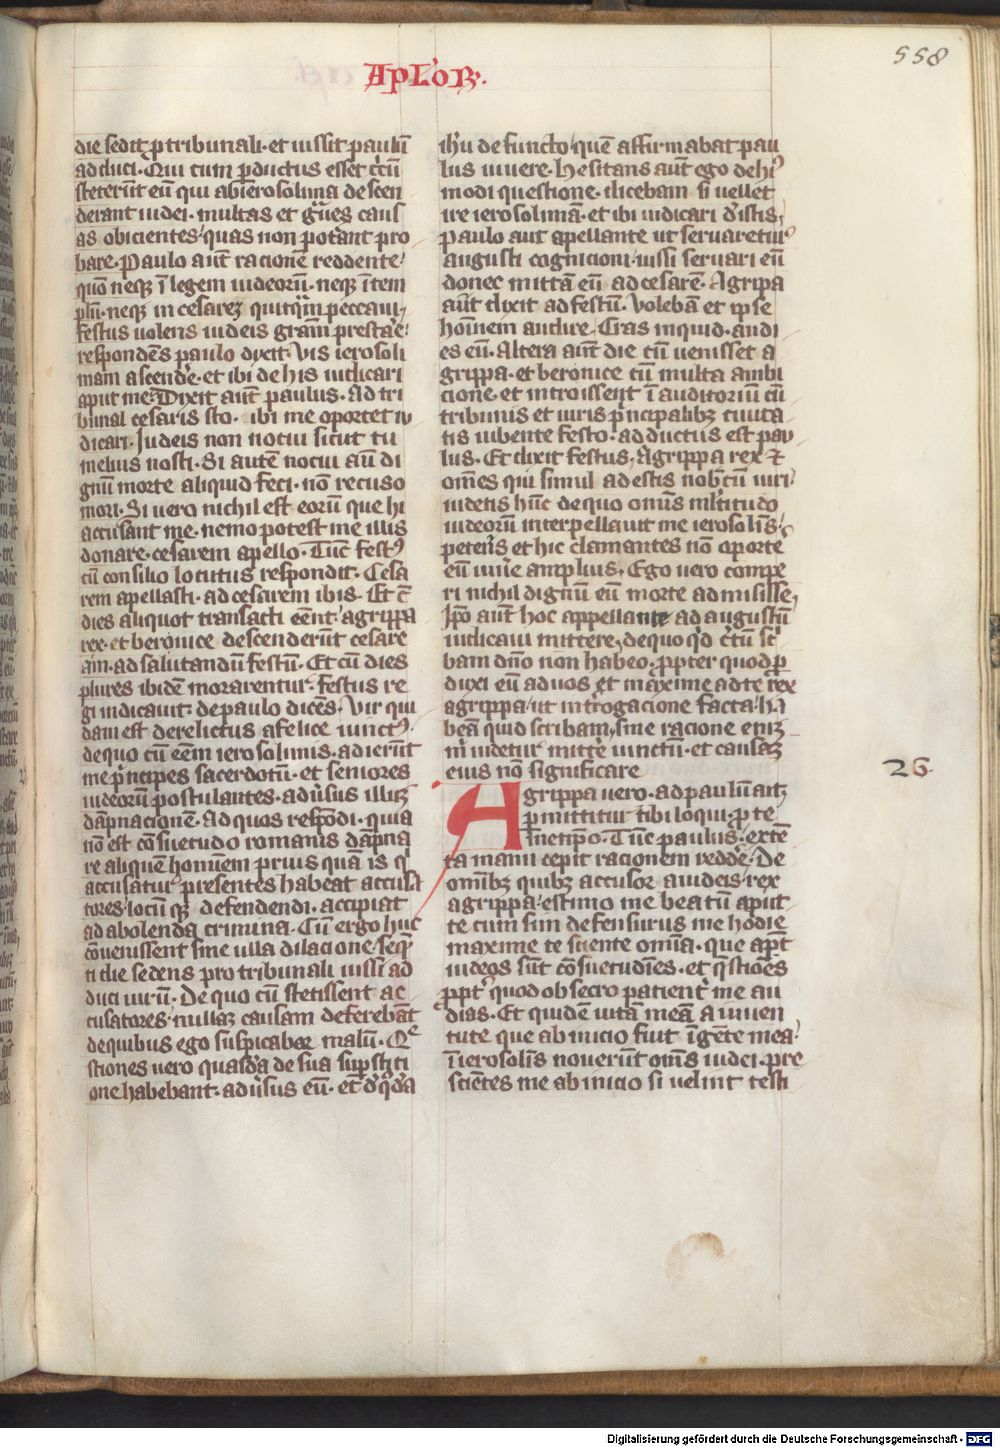 558
Aplo℞.
die sedit ꝓ tribunali · et iussit paulū
adduci · Qui cum ꝑductus esset c̄cū
steterūt eū qui abierosolima descen
derant iudei · multas et gͣues caus
as obicientes quas non poterant pro
bare · Paulo aūt racionē reddente
qm̄ neqꝫ ī legem iudeorū · neqꝫ ī tem
plū · neqꝫ in cesarē quitqͣm peccaui ·
festus uolens iudeis grām prestare
respondēs paulo dixit · Vis ierosoli
mam ascende · et ibi de his iudicari
aput me · Dixit aūt paulus · Ad tri
bunal cesaris sto · ibi me oportet iu
dicari · Iudeis non nocui sicut tu
melius nosti · Si autē nocui aūt di
gnū morte aliquid feci · nō recuso
mori · Si uero nichil est eorū que hi
accusant me · nemo potest me illis
donare · cesarem apello · Tūc fest⁹
cū consilio locutus respondit · Cesa
rem apellasti · ad cesarem ibis · Et c̄
dies aliquot transacti eēnt · agrippa
rex · et beronice descenderūt cesare
am · ad salutandū festū · Et cū dies
plures ibidē morarentur · festus re
gi indicauit · de paulo dicēs · Vir qui
dam est derelictus a felice iunct⁹ ·
de quo cū eēm ierosolimis · adierūt
me pͥncipes sacerdotū · et seniores
iudeorū postulantes · adusus illiꝫ
dāpnacionē · Ad quos respōdi · quia
nō est cōsuetudo romanis dāpna
re aliquē hominem prius quā is qͥ
accusatur presentes habeat accusa
tores · locū qꝫ defendendi · accipiat
ad abolenda crimina · Cū ergo huc
cōuenissent sine ulla dilacione · seqn̄
ti die sedens pro tribunali iussi ad
duci uirū · De quo cū stetissent ac
cusatores · nullaꝫ causam deferebāt
de quibus ego suspicabar malū · Qͤ
stiones uero quasdā de sua supsticti
one habebant · adusus eū · et d̄ qͦdā
ih̄u defuncto · quē affirmabat pau
lus uiuere · hesitans aūt ego de hi⁹
modi questione · dicebam si uellet
ire ierosolimā · et ibi iudicari d̄ istis ·
Paulo aūt apellante ut seruaretur
augusti cognicioni · iussi seruari eū
donec mittā eū ad cesarē · Agripa
aūt dixit ad festū · Volebā et ipse
hoīnem audire · Cras inquid · audi
es eū · Altera aūt die cū uenisset a
grippa · et beronice cū multa ambi
cione · et introissent ī auditoriū cū
tribunis et uiris pͥncipalibꝫ ciuita
tis iubente festo · adductus est pau
lus · Et dixit festus · Agrippa rex ⁊
om̄es qui simul adestis nob̄cū uiri
uidetis hūc de quo omīs m̄ltitudo
iudeorū interpellauit me ierosolīs ·
petens et hic clamantes nō oporte
eū uiue amplius · Ego uero compe
ri nichil dignū eū morte admisisse ·
Ip̄o aūt hoc appellante ad augustū
iudicaui mittere · de quo qͥd c̄tū sc̄
bam dn̄o non habeo · ꝓpter quod ꝓ
duxi eū ad uos et maxime ad te rex
agrippa · ut introgacione facta ha
beā quid scribam · sine racione eniꝫ
m̄ uidetur mitte uinctū · et causaꝫ
eius nō significare
26
Agrippa uero · ad paulū aitꝫ
ꝑmittitur tibi loqui · ꝓ te
metip̄o · Tūc paulus · extē
ta manu cepit racionem redde · De
omībꝫ quibꝫ accusor a iudeis · rex
agrippa · estimo me beatū aput
te cum sim defensurus me hodie
maxime te sciente om̄ia · que apt
iudeos sūt cōsuetudīes · et qͣstiōes
ꝓpt quod obsecro patient me au
dias · Et quidē uitā meā a iuuen
tute que ab inicio fuit ī gente mea
ī ierosolīs nouerūt om̄s iudei · pre
sciētes me ab inicio si uelint testi
Digitalisierung gefördert durch die Deutsche Forschungsgemeinschaft - DFG